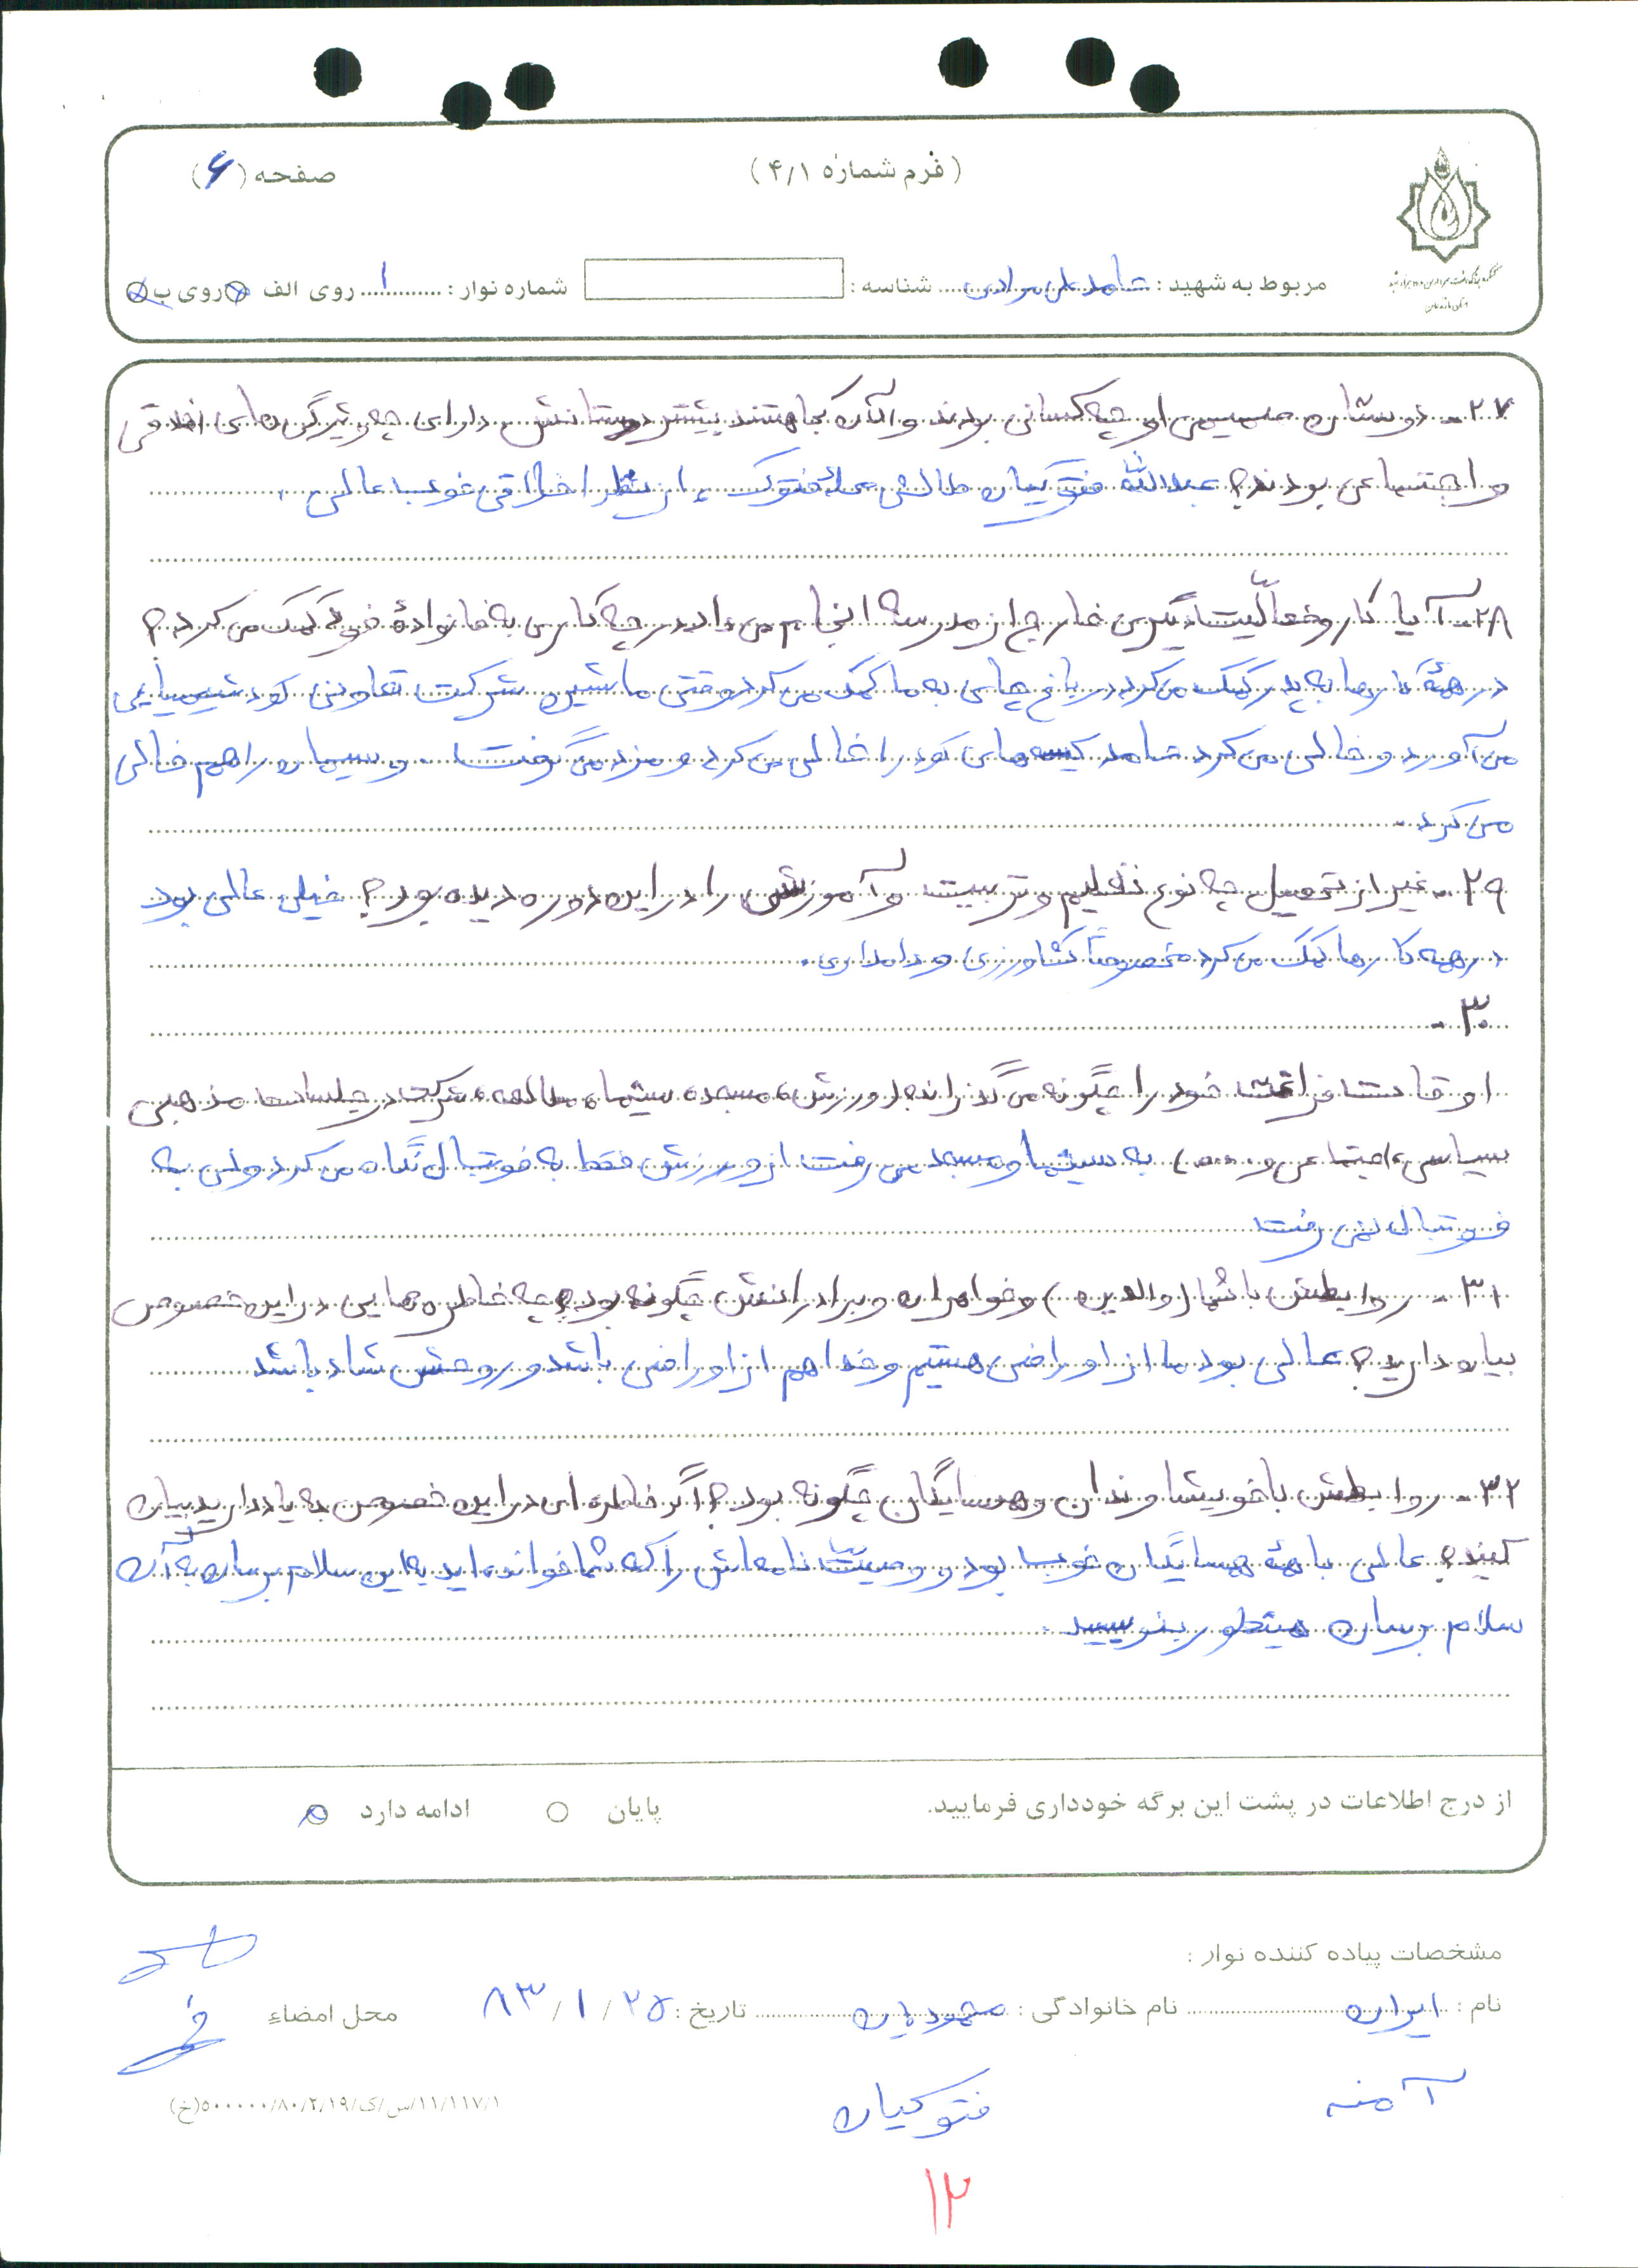 (فرم شماره ۴/۱)
صفحه (۶)
مربوط به شهید : حامد علی مرادی شناسه : شماره نوار : ۱ روی الف روی ب
۲۷- دوستان صمیمی او چه کسانی بودند و الان کجا هستند بیشتر دوستانش دارای چه ویژگی های اخلاقی
و اجتماعی بودند؟ عبدالله فتوکیان طالش محله فتوک ، از نظر اخلاقی خوب عالی .
۲۸- آیا کار و فعالیت دیگری خارج از مدرسه انجام می داد در چه کاری به خانوادهٔ خود کمک می کرد ؟
در همهٔ کارها به پدر کمک می کرد در باغ چای به ما کمک می کرد وقتی ماشین شرکت تعاونی کود شیمیایی
می آورد و خالی می کرد حامد کیسه های کود را خالی می کرد و مزد می گرفت . و سیمان را هم خالی
می کرد .
۲۹- غیر از تحصیل چه نوع تعلیم و تربیت و آموزش را در این دوره دیده بود ؟ خیلی عالی بود
در همه کارها کمک می کرد مخصوصاً کشاورزی و دامداری .
۳۰-
اوقات فراغت خود را چگونه می گذراند (ورزش ، مسجد ، سینما ، مطالعه ، شرکت در جلسات مذهبی
سیاسی ، اجتماعی و ....) به سینما و مسجد می رفت از ورزش فقط به فوتبال نگاه می کرد ولی به
فوتبال نمی رفت
۳۱- روابطش با شما (والدین) و خواهران و برادرانش چگونه بود ؟ چه خاطره هایی در این خصوص
بیاد دارید ؟ عالی بود ما از او راضی هستیم و خدا هم از او راضی باشد و روحش شاد باشد
۳۲- روابطش با خویشاوندان و همسایگان چگونه بود ؟ اگر خاطره ای در این خصوص به یاد دارید بیان
کنید ؟ عالی با همهٔ همسایگان خوب بود و وصیت نامه اش را که شما خوانده اید به این سلام برسان به آن
سلام برسان همینطور بنویسید .
از درج اطلاعات در پشت این برگه خودداری فرمایید.
پایان
ادامه دارد
مشخصات پیاده کننده نوار :
نام : ایران نام خانوادگی : محمودیان تاریخ : ۲۵ / ۱ / ۸۳ محل امضاء
آمنه فتوکیان
۱۱/۱۱۷/۱/س/ک/۸۰/۲/۱۹/۵۰۰۰۰۰(خ)
۱۲